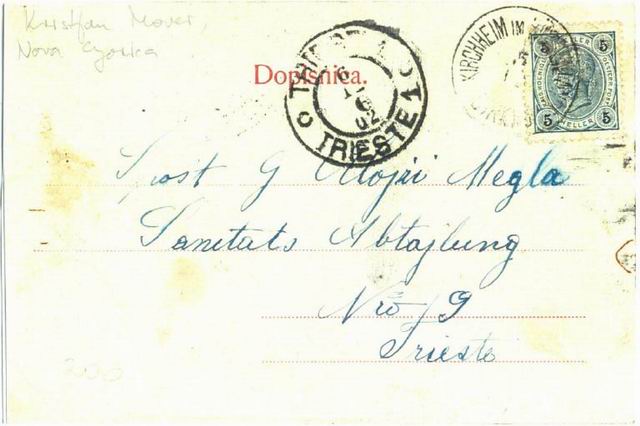 Kristjan Mover,
Nova Gorica
Dopisnica.
TRIESTE 1
6
02
TRIESTE 1
KIRCHHEIM IM
5 5
HELLER
5 5
Spost G Alojzi Megla
Sanitats Abtajlung
Nro 9
Trieste
200